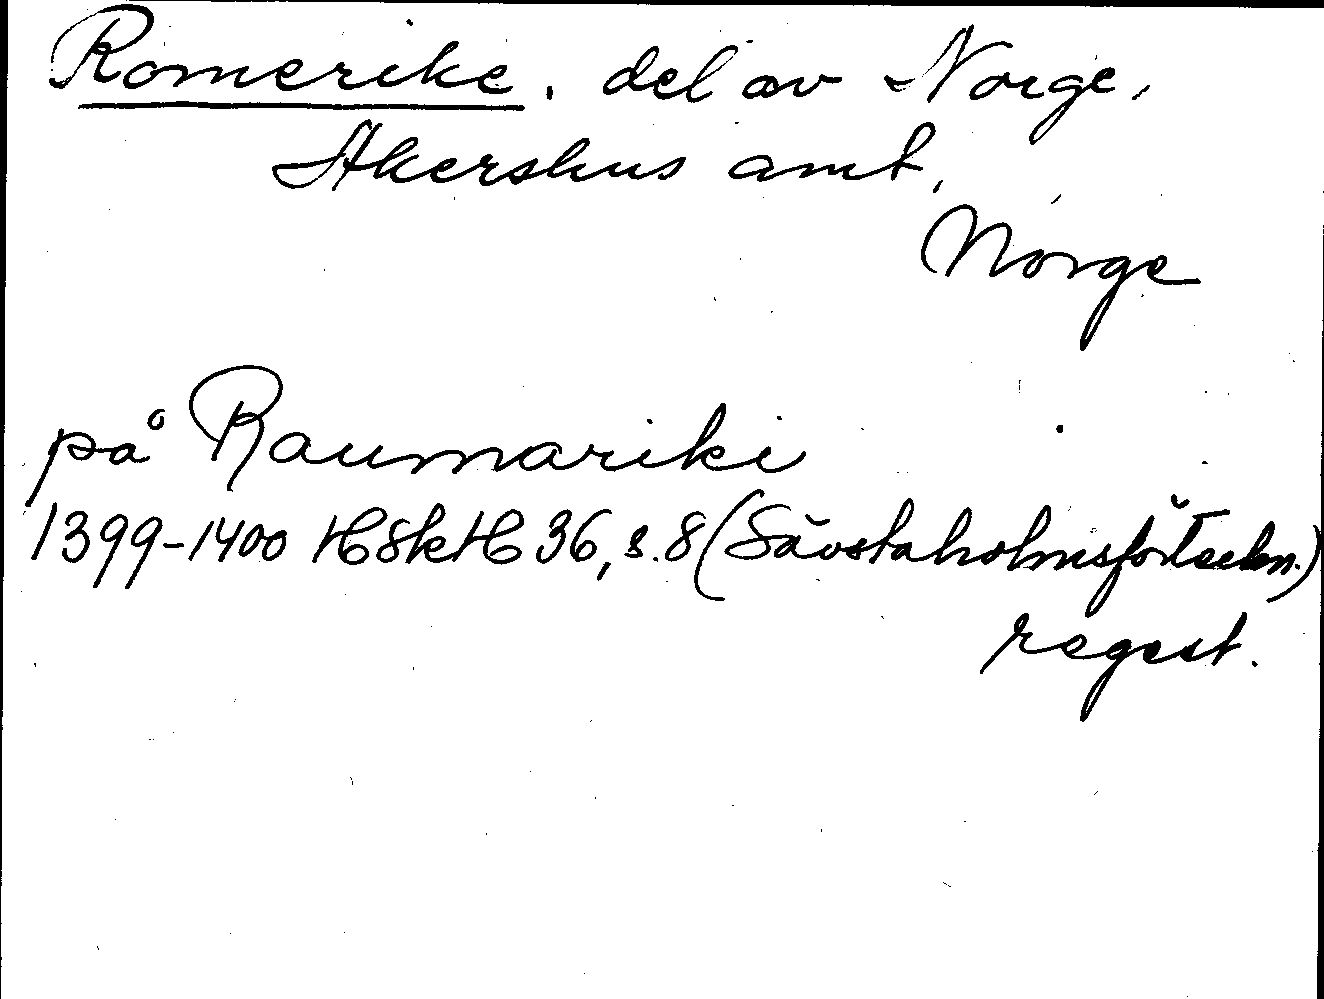 Romerike. del av Norge,
Akershus amt,
Norge
på Raumariki
1399-1400 HSkH 36, s. 8 (Sävstaholmsförteckn.)
regest.